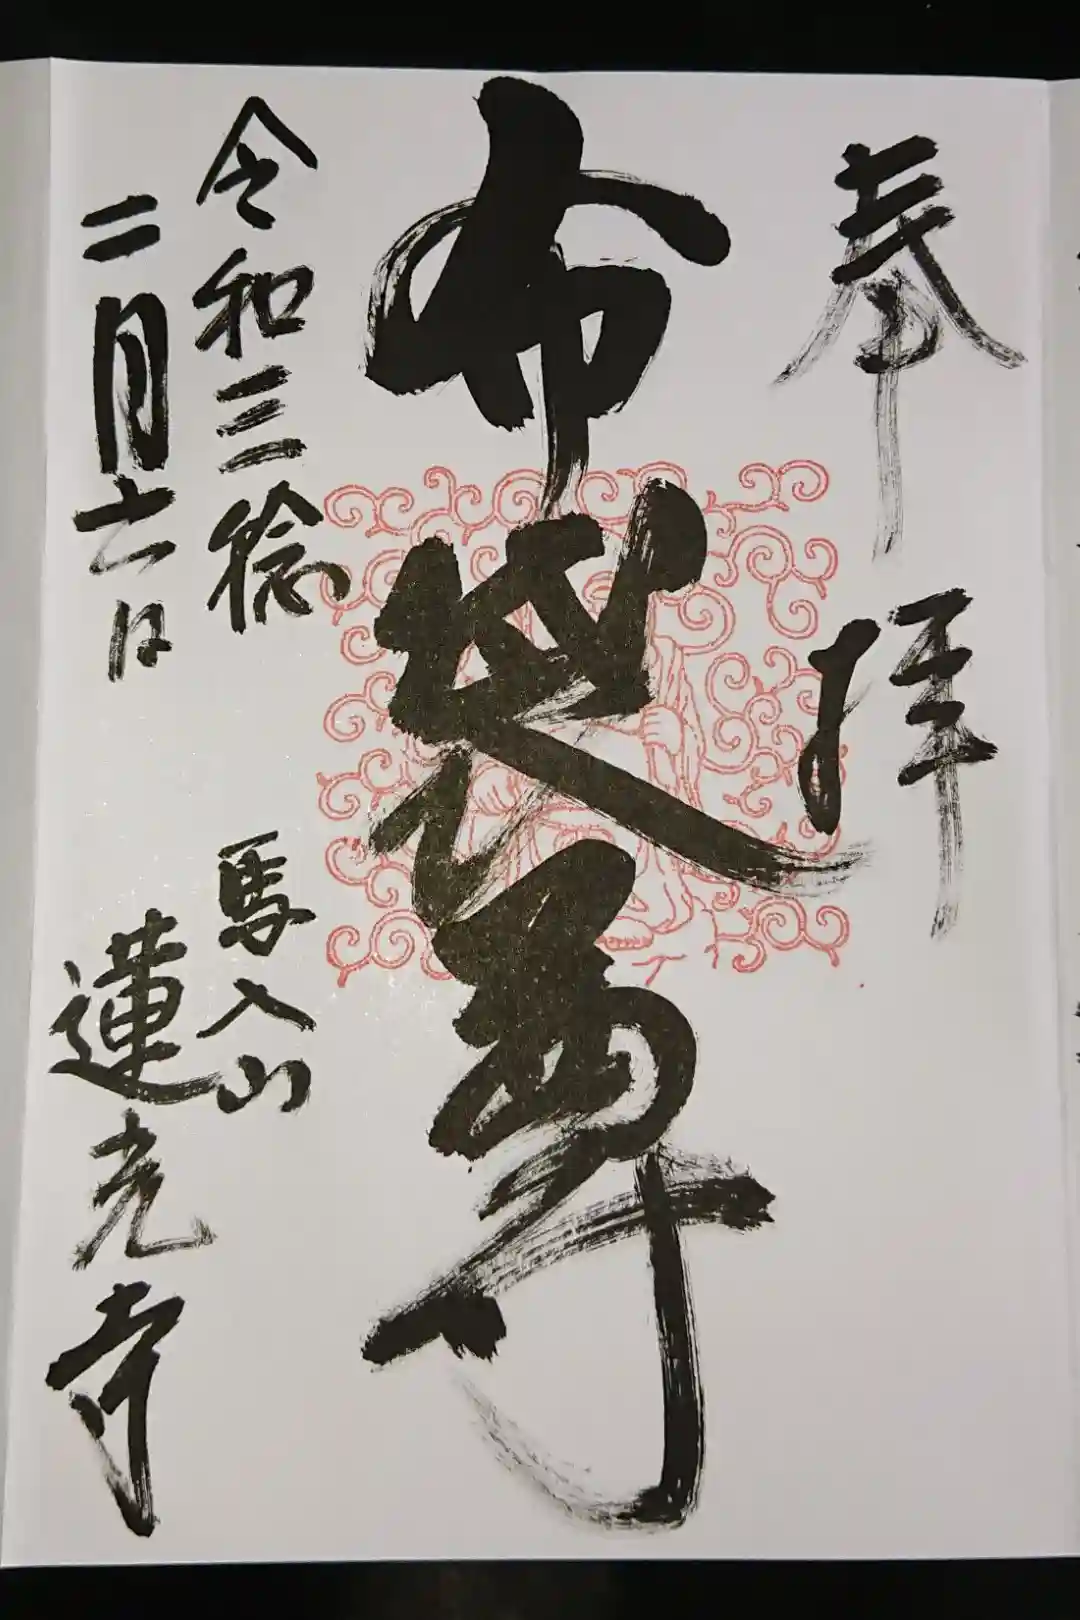 奉拝
布袋尊
令和三稔
二月六日
馬入山
蓮光寺